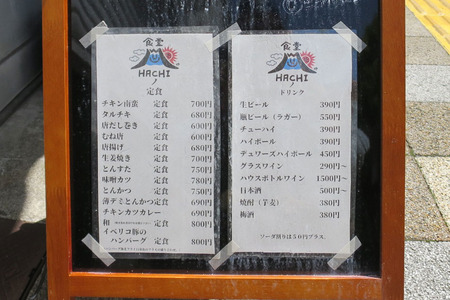 食堂
HACHI
ノ
定食
チキン南蛮 定食 700円
タルチキ 定食 680円
唐だし巻き 定食 680円
むね唐 定食 680円
唐揚げ 定食 680円
生姜焼き 定食 700円
とんすた 定食 750円
味噌カツ 定食 780円
とんかつ 定食 750円
薄デミとんかつ定食 690円
チキンカツカレー 690円
和 定食 800円
イベリコ豚の
ハンバーグ 定食 800円
食堂
HACHI
ノ
ドリンク
生ビール 390円
瓶ビール(ラガー) 550円
チューハイ 390円
ハイボール 390円
デュワーズハイボール 450円
グラスワイン 290円~
ハウスボトルワイン 1500円~
日本酒 500円~
焼酎(芋麦) 380円
梅酒 380円
ソーダ割りは50円プラス。